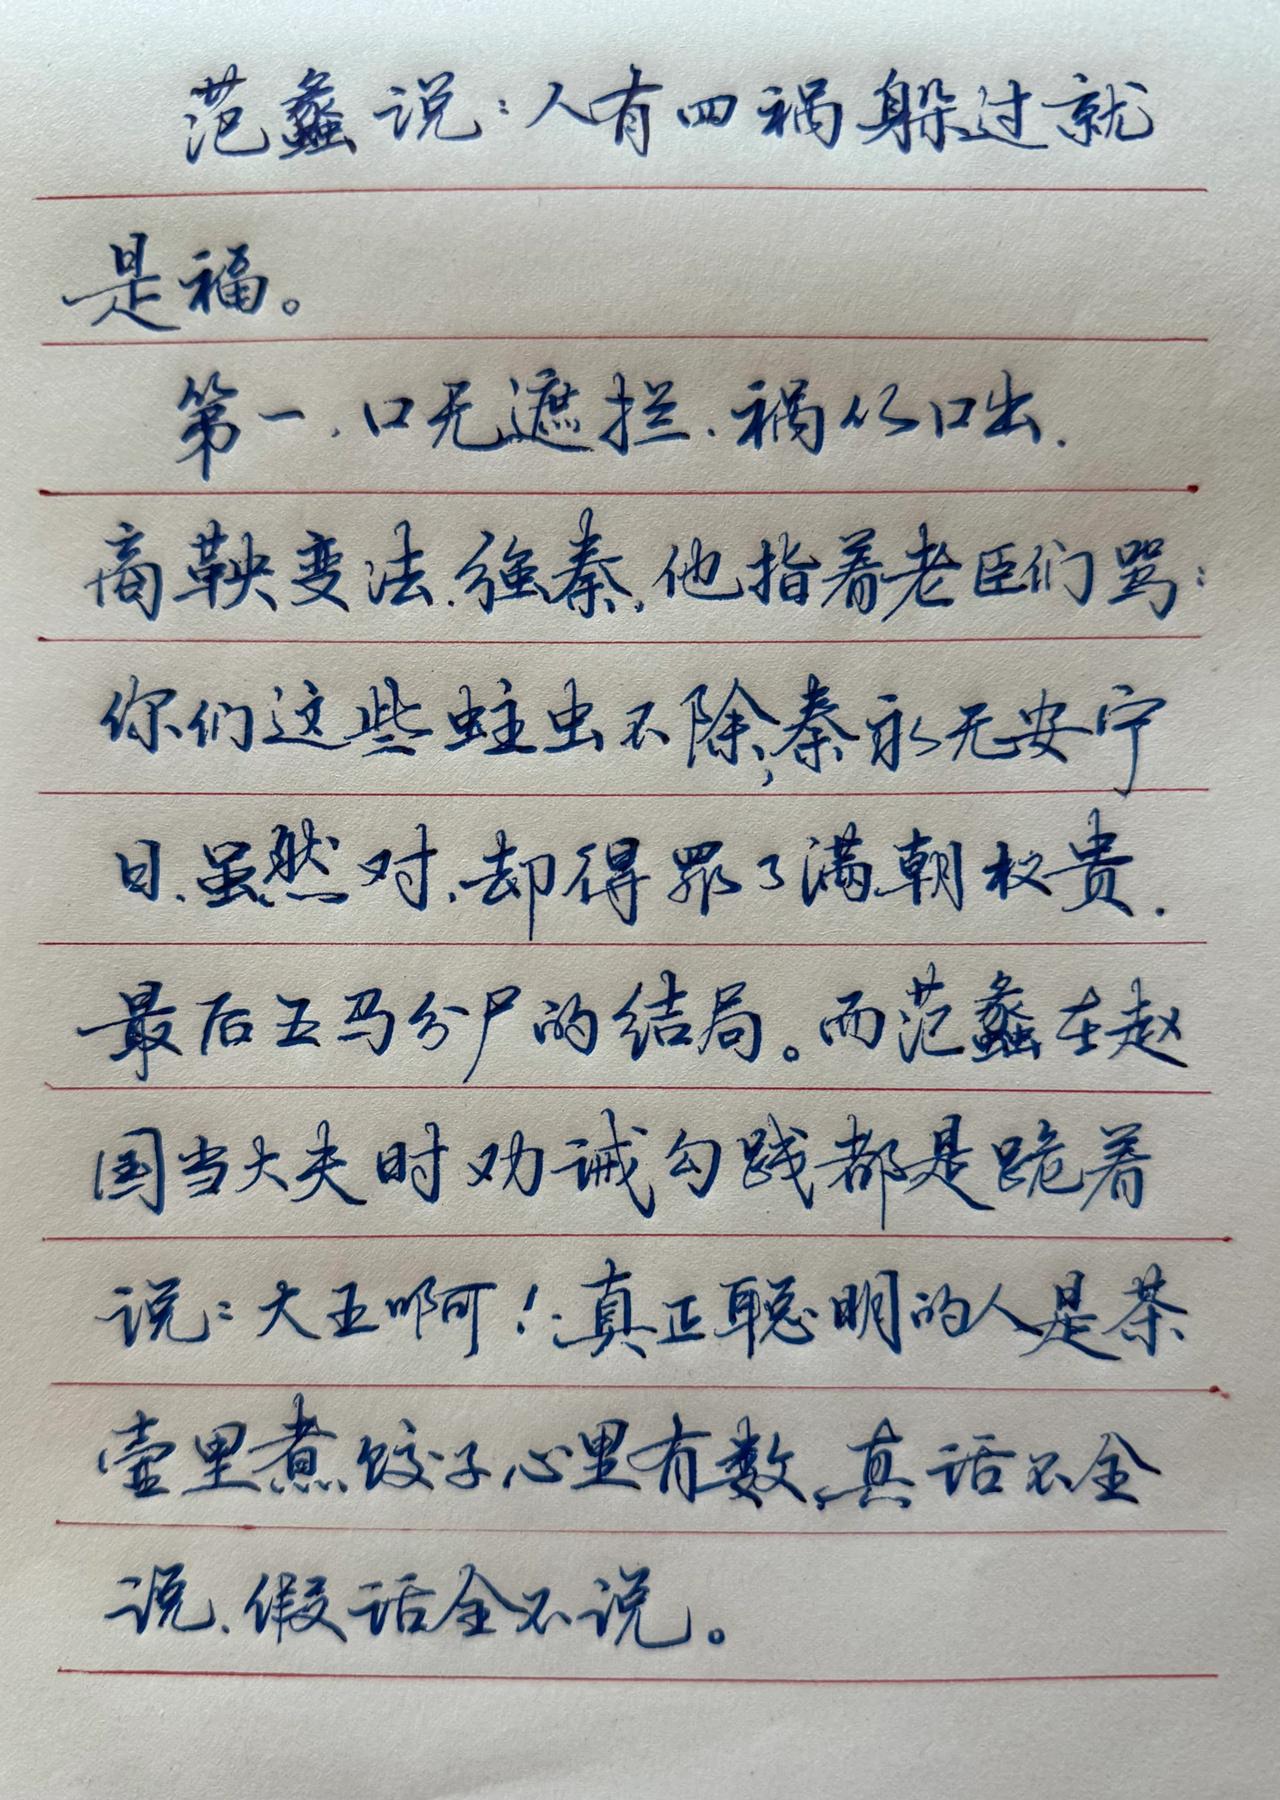 范蠡说:人有四祸躲过就
是福。
第一、口无遮拦、祸从口出.
商鞅变法、强秦,他指着老臣们骂:
你们这些蛀虫不除,秦永无安宁
日、虽然对、却得罪了满朝权贵.
最后五马分尸的结局。而范蠡在赵
国当大夫时劝诫勾践都是跪着
说:大王啊!真正聪明的人是茶
壶里煮饺子心里有数,真话不全
说、假话全不说。